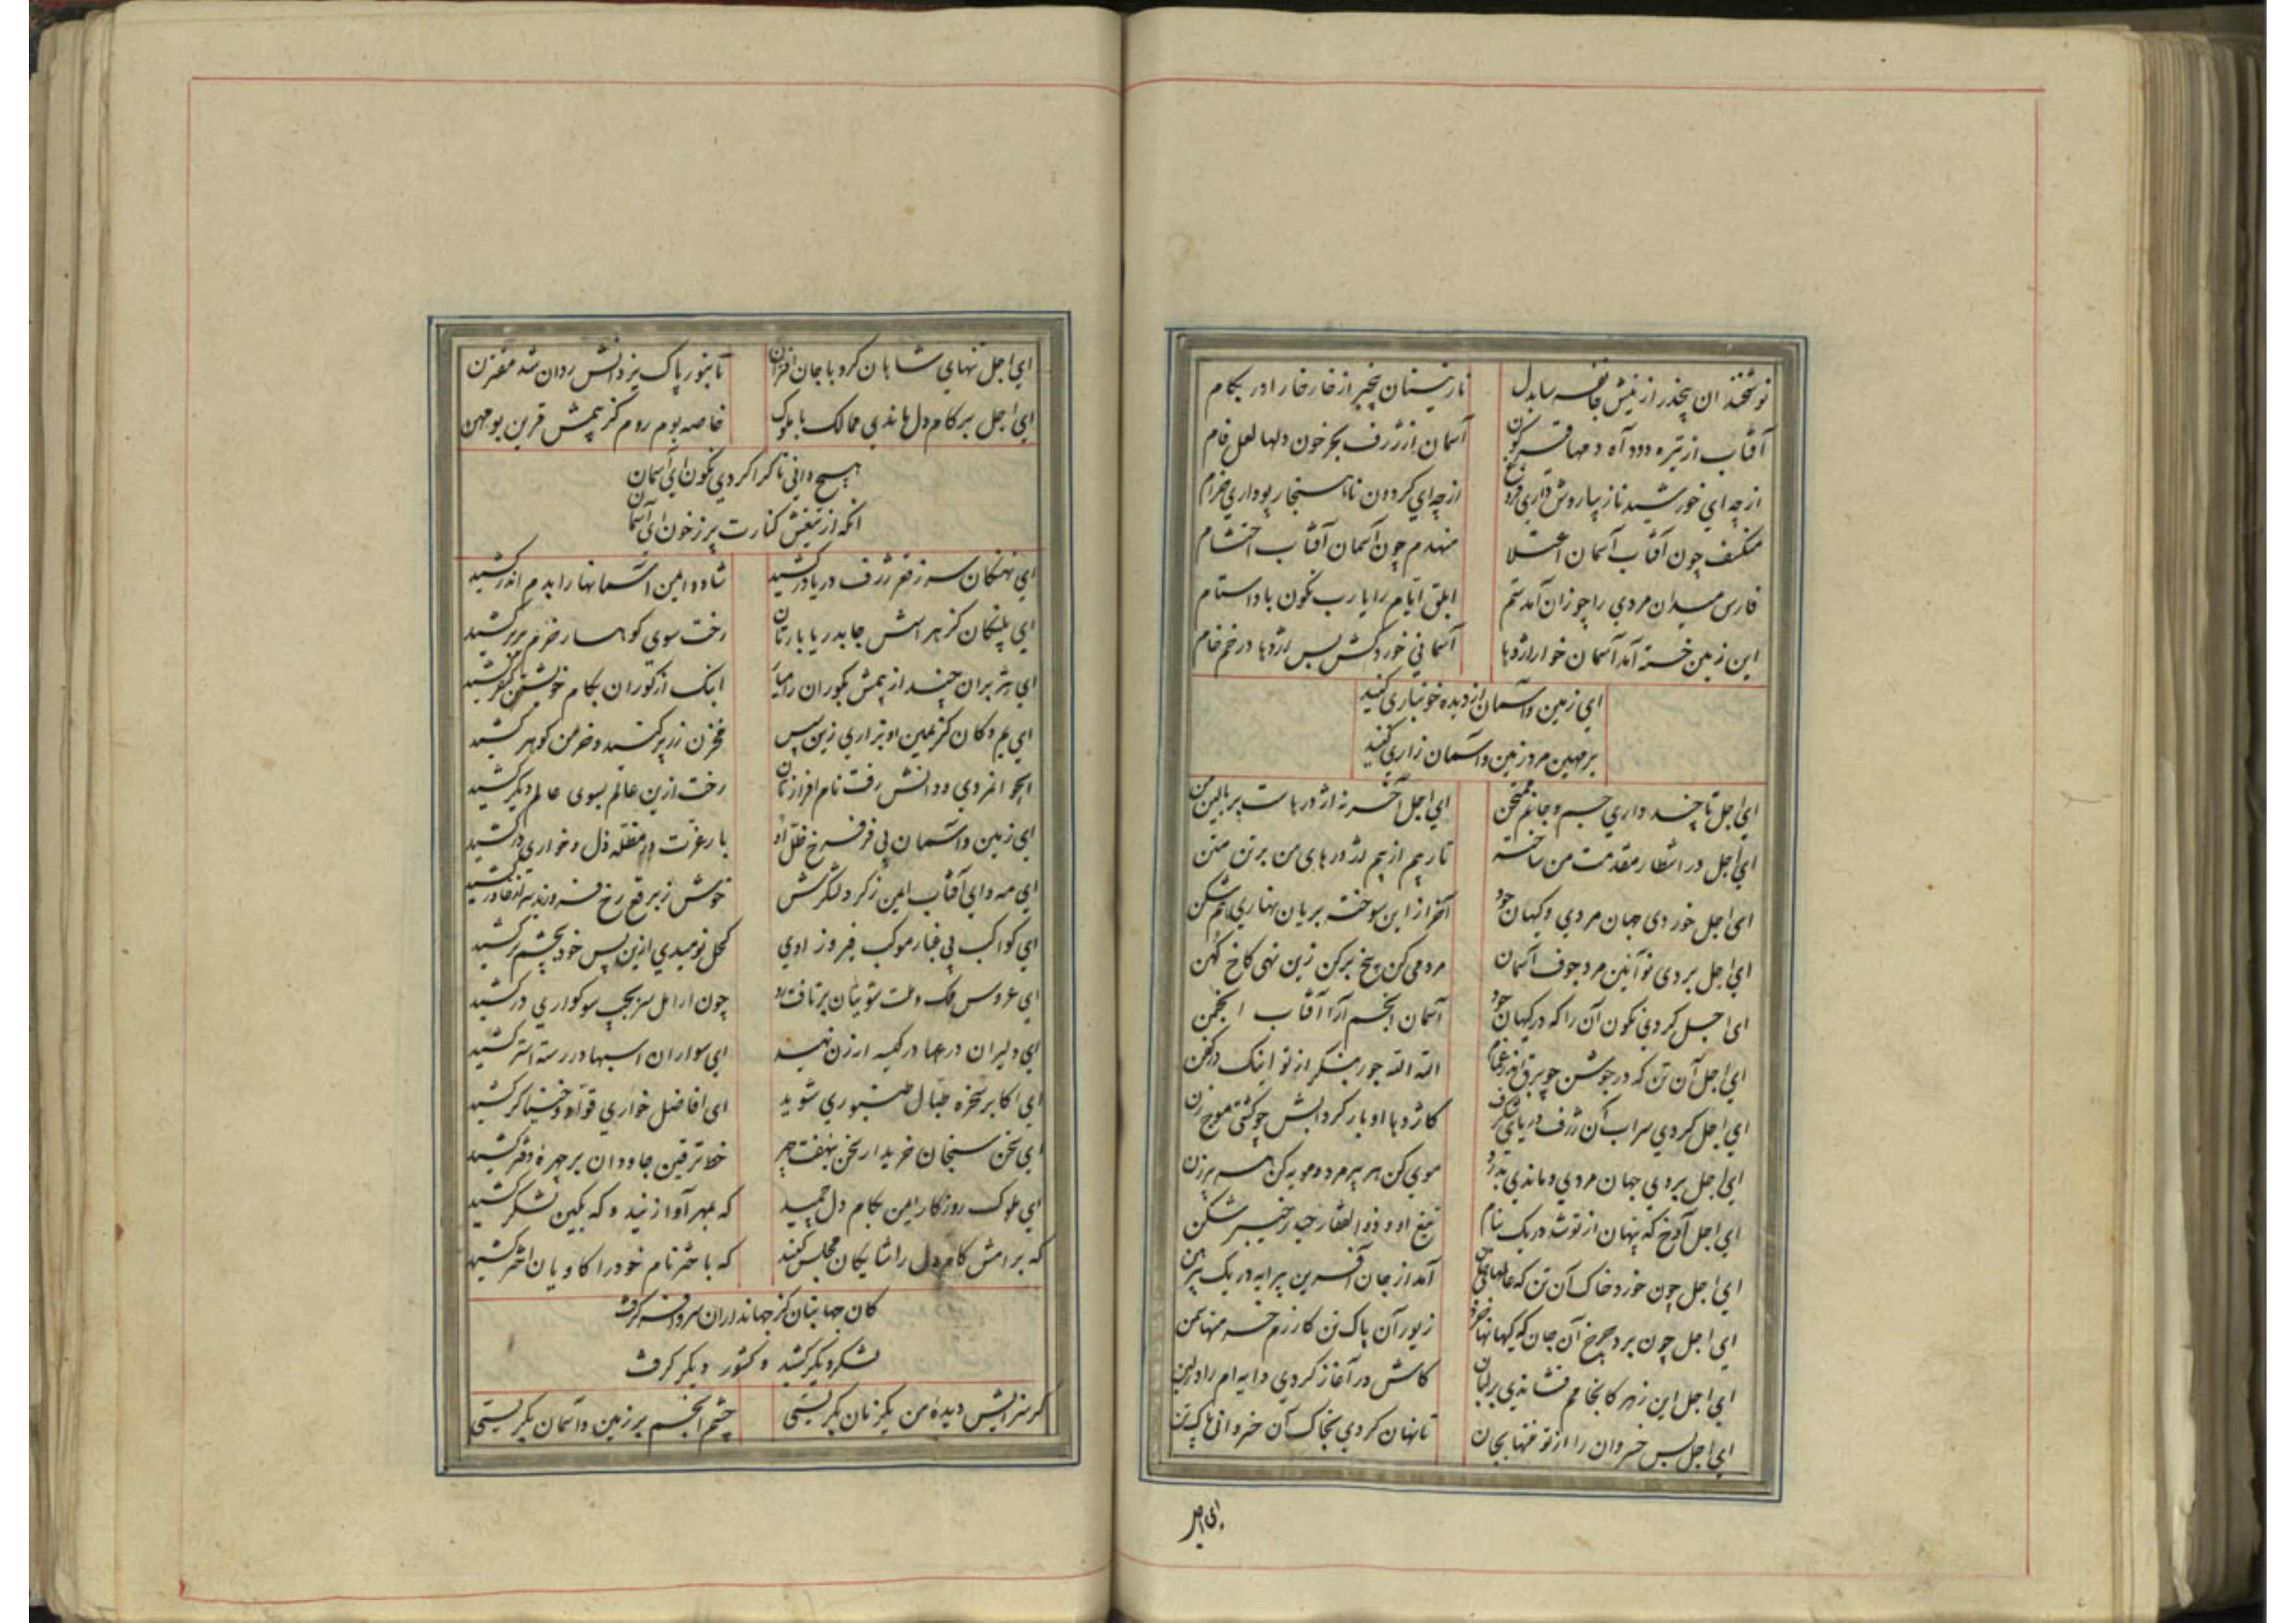 نوشخند ان بیخدر از نیش جانفرسا بدل
نارپستان بیخبر از خار خار اور بکام
آفتاب از تیره دود آه دمها قیرگون
آسمان از ژرف بحر خون دلها لعل فام
از چه ای خورشید نازیبا روش داری فروغ
از چه ای کردون ناهنجار پو داری خرام
منکسف چون آفتاب آسمان اعتلا
منهدم چون آسمان آفتاب احتشام
فارس میدان مردی را چو زان آمد ستم
ابلق ایام را یا رب نکون باد استام
این زمین خسته آمد آسمان خوار اژدها
آسمانی خورد کش بس اژدها در خم خام
ای زمین و آسمان از دیده خونباری کنید
بر مهین مرد زمین و آسمان زاری کنید
ای اجل تا چند داری جسم و جانم ممتحن
ای اجل آخر نه اژدرهاست بر بالین من
ای اجل در انتظار مقدمت من ساخته
تا رهم از بیم اژدرهای من بر تن متن
ای اجل خوردی جهان مردی و کیهان جود
آخر از این سوخته بریان نهاری هم شکن
ای اجل بردی نو آئین مرد جوف آسمان
مردمی کن بیخ برکن زین نهی کاخ کهن
ای اجل کردی نکون آن را که در کیهان جود
آسمان انجم آرا آفتاب انجمن
ای اجل آن تن که در جوشن چو برق اندر غمام
الله الله جور بنگر از تو اینک در کفن
ای اجل کردی سراب آن ژرف دریای شگرف
کاژدها اوبار کردابش چو کشتی موج زن
ای اجل بردی جهان مردی و ماندی بدرد
موی کن هر پیر مرد و مویه کن هر پیرزن
ای اجل آوخ که پنهان از تو شد در یک نیام
تیغ او و ذوالفقار حیدر خیبر شکن
ای اجل چون خورد خاک آن تن که عالمهای جان
آمد از جان آفرین پیرایه در یک پیرهن
ای اجل چون برد چرخ آن جان که کیهانها خرد
زیور آن پاک تن کارزم خسته منها تهمن
ای اجل این زهر کانجامم فشاندی بر لبان
کاش در آغاز کردی دایه ام را در لبن
ای اجل بس خسروان را از تو منتها بجان
تا نهان کردی بخاک آن خسروانی پاک تن
ای اجل
ای اجل تنهای شاهان کرد با جان اقتران
تا بنور پاک یزدانش روان شد مقترن
ای اجل بر کام دل ماندی ممالک با ملوک
خاصه بوم روم کز بیمش قرین بو مهن
هیچ دانی تا کرا کردی نکون ای آسمان
آنکه از تیغش کنارت پر ز خون ای آسمان
ای نهنگان سر ز قعر ژرف دریا در کشید
شاد و ایمن آشیانها را بدم اندر کشید
ای پلنگان کز هراسش جا بدریا بارتان
رخت سوی کوهسار خرم بربر کشید
ای هژبران چند از بیمش بکوران رامیار
اینک از کوران بکام خویشتن کیفر کشید
ای یم و کان کز یمین او بزاری زین سپس
مخزن زر پر کنید و خرمن کوهر کشید
ای جوانمردی و دانش رفت نام افرازتان
رخت ازین عالم بسوی عالم دیکر کشید
ای زمین و آسمان بی فر فرخ ظل او
بار عزت در مظله ذل و خواری در کشید
ای مه و ای آفتاب ایمن ز کرد لشکرش
خوش ز برقع رخ فروزید سر از خاور کشید
ای کواکب بی غبار موکب فیروز اوی
کحل نومیدی ازین پس خود بچشم تر کشید
ای عروس ملک و ملت شوی تان برتافت رو
چون ارامل سر بجیب سوکواری در کشید
ای دلیران درعها در کیسه ارزن نهید
ای سواران اسبها در رسته استر کشید
ای اکابر سخره طبال طنبوری شوید
ای افاضل خواری قواد و خنیاکر کشید
ای سخن سنجان خریدار سخن بنهفت چهر
خط ترقین جاودان بر چهره دفتر کشید
ای ملوک روزگار ایمن بکام دل چمید
که بمهر آوا زنید و که بکین لشکر کشید
که برامش کام دل را شایکان مجلس کنید
که با ختر نام خود را کاویان اختر کشید
کان جهانبان کز جهانداران سر و افسر گرفت
لشکر دیکر کشید و کشور دیکر کرفت
کر سزایش دیده من یکزمان بکریستی
چشم انجم بر زمین و آسمان بکریستی